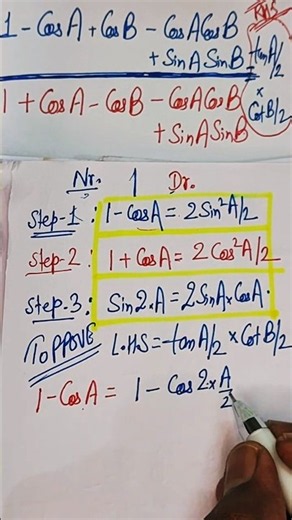 1 - CosA + CosB - CosACosB
+ SinA SinB
RHS
tanA/2
×
CotB/2
1 + CosA - CosB - CosACosB
+ SinASinB
Nr. 1 Dr.
Step-1 : 1 - CosA = 2Sin²A/2
Step-2 : 1 + CosA = 2Cos²A/2
Step-3 : Sin2·A = 2SinA×CosA·
TO PROVE L·H·S = tanA/2 × CotB/2
1 - CosA = 1 - Cos2×A/2